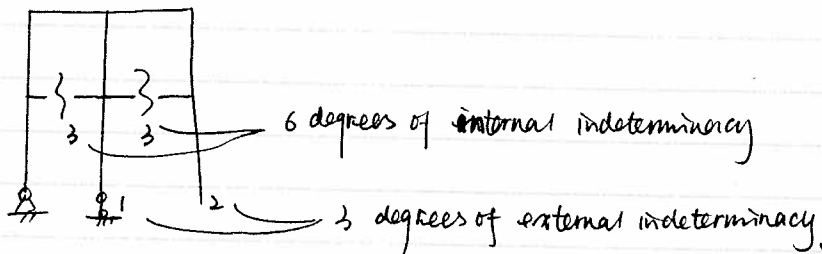 3 3 6 degrees of internal indeterminacy
1 2 3 degrees of external indeterminacy.